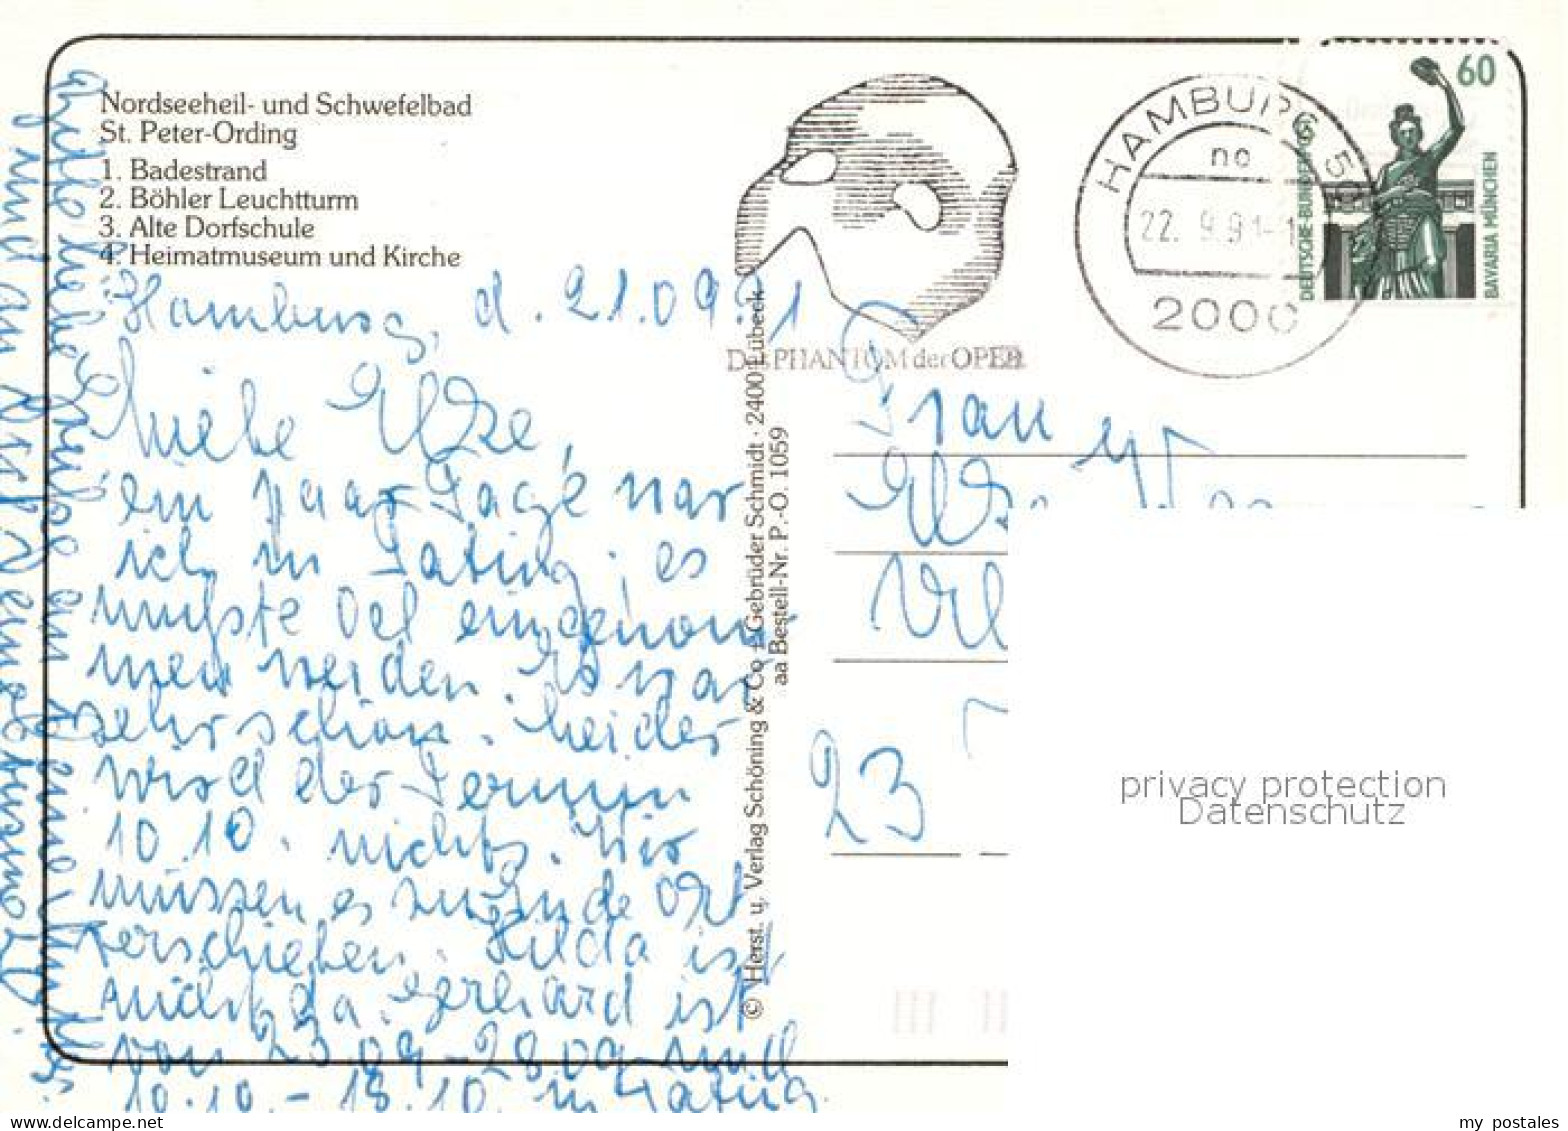 Nordseeheil- und Schwefelbad
St. Peter-Ording
1. Badestrand
2. Böhler Leuchtturm
3. Alte Dorfschule
4. Heimatmuseum und Kirche
Hamburg, d. 21.09.91
Liebe Else,
ein paar Tage war
ich in Tating; es
mußte Oel eingenom-
men werden. Es war
sehr schön. Leider
wird der Termin
10.10. nichts. Wir
müssen es zu Ende Okt
verschieben. Hilda ist
nicht da. Gerhard ist
von 23.09-28.09 und
10.10.-18.10. in Tating.
© Herst. u. Verlag Schöning & Co + Gebrüder Schmidt · 2400 Lübeck
aa Bestell-Nr. P.-O. 1059
Das PHANTOM der OPER
HAMBURG
no
22. 9.91-1
2000
60
DEUTSCHE BUNDESPOST
BAVARIA MÜNCHEN
Frau
Else
23
privacy protection
Datenschutz
my postales